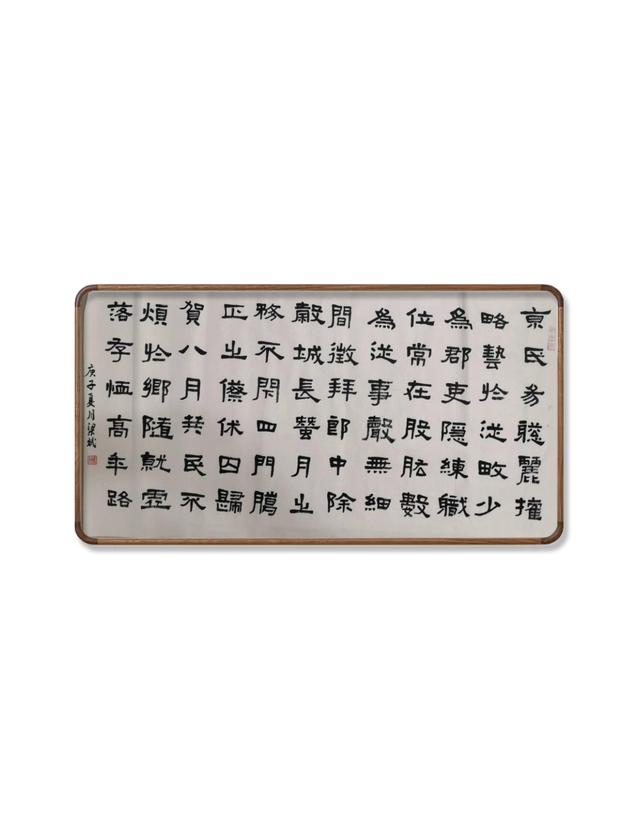 京氏易聰麗權
略藝於從畋少
為郡吏隱練職
位常在股肱數
為從事聲無細
間徵拜郎中除
穀城長蠶月之
務不閉四門臘
正之僚休囚歸
賀八月筭民不
煩於鄉隨就虛
落存恤高年路
庚子夏月梁斌